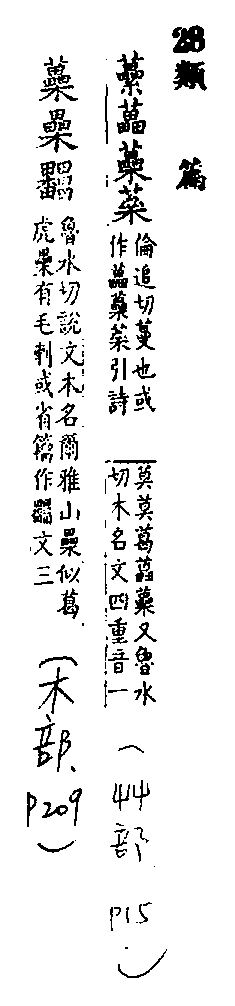 28類篇
倫追切蔓也或
作藟蘽蔂引詩
莫莫葛藟蘽又魯水
切木名文四重音一
(艸部 P15)
魯水切說文木名爾雅山櫐似葛
虎櫐有毛刺或省籀作文三
(木部、P209)